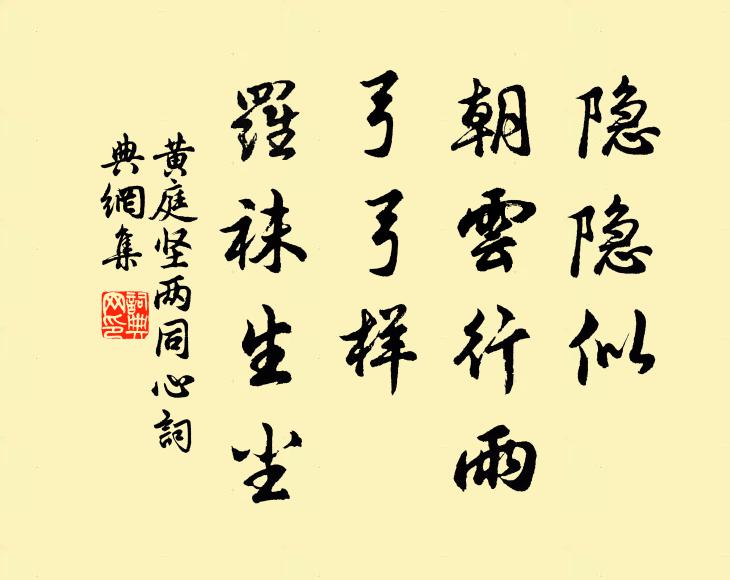 隐隐似
朝雲行雨
弓弓样
羅袜生尘
黄庭坚两同心詞
典網集
詞典
网印